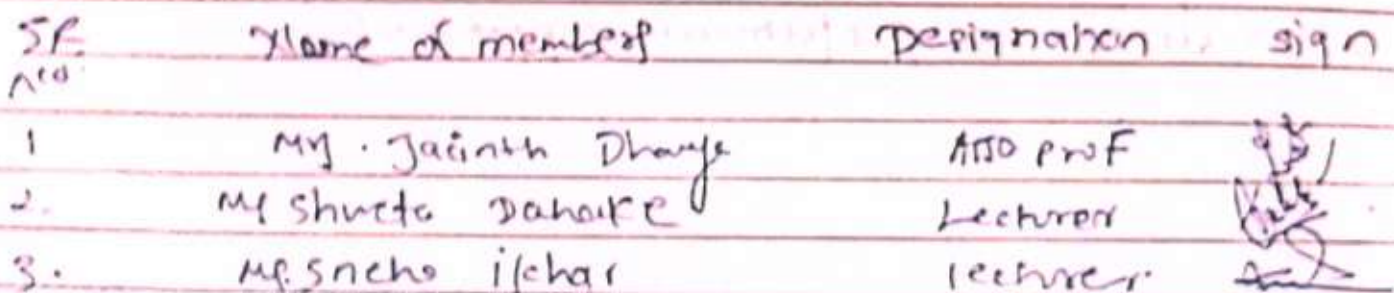 Sr. Name of members Designation sign
no
1 Ms. Jacinth Dhaye Asso prof
2. Ms Shweta Dahake Lecturer
3. Ms. Sneha lecturer.